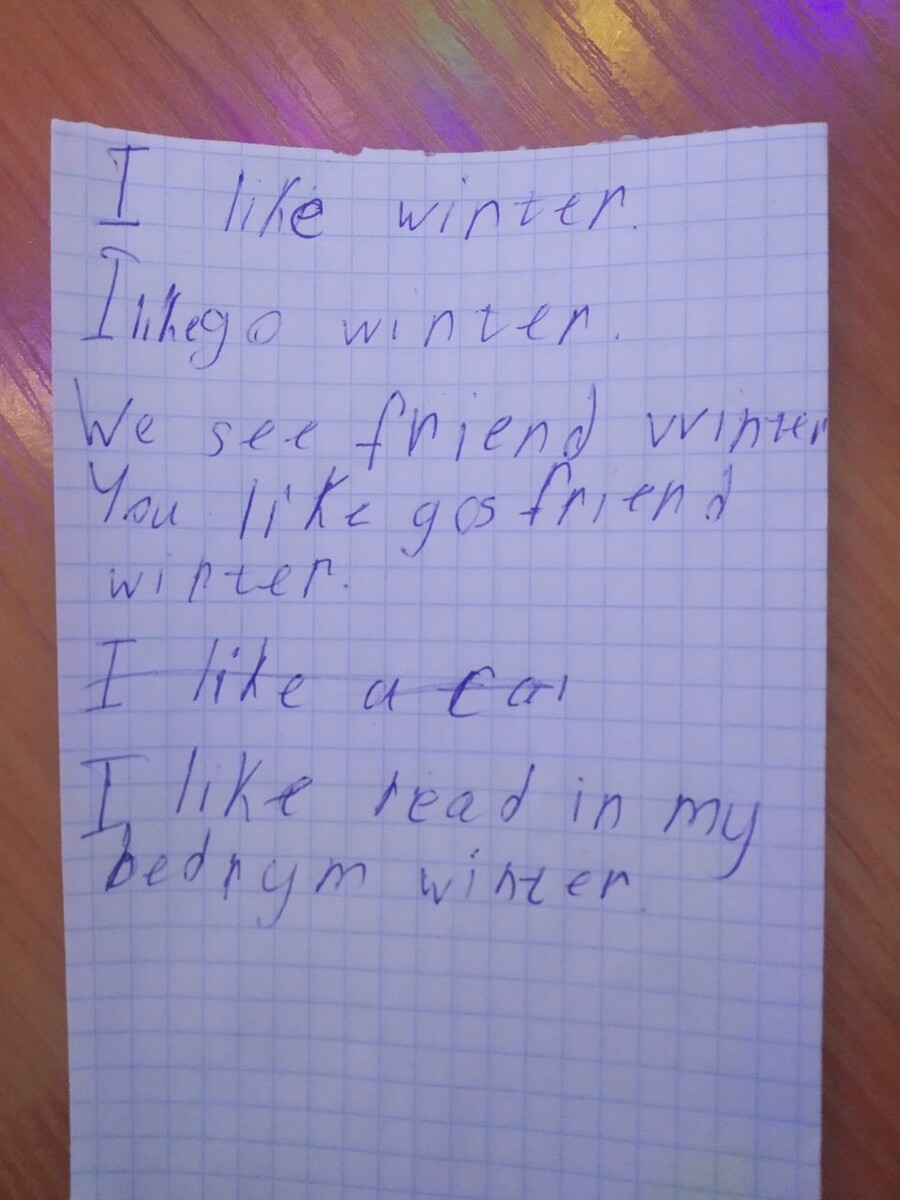 I like winter.
I like go winter.
We see friend winter
You like gos friend
winter.
I like a car
I like read in my
bedrym winter.